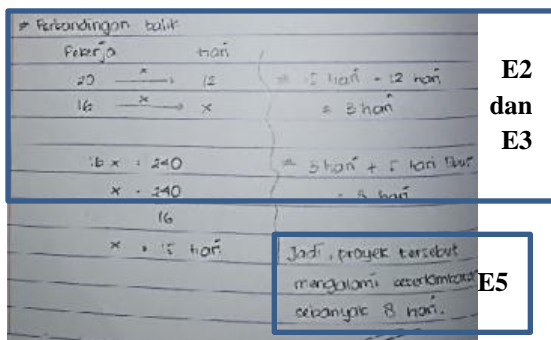 ⇒ Perbandingan balik
Pekerja hari
20 ×→ 12
16 ×→ x
16 x = 240
x = 240
16
x = 15 hari
= 15 hari - 12 hari
= 3 hari
= 3 hari + 5 hari libur
= 8 hari
Jadi, proyek tersebut
mengalami keterlambatan
sebanyak 8 hari.
E2
dan
E3
E5